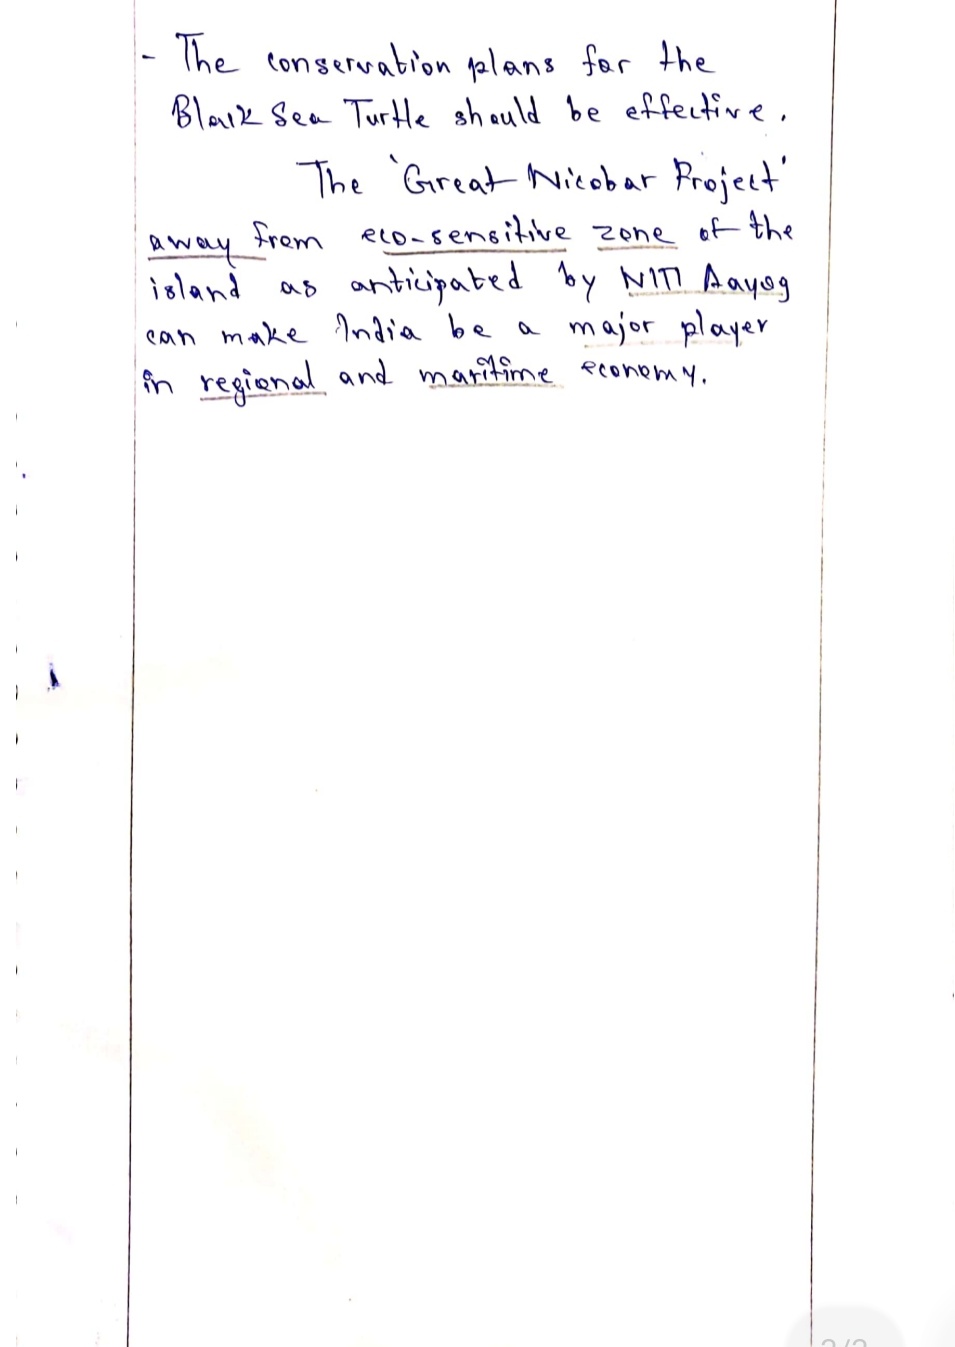 - The conservation plans for the
Black Sea Turtle should be effective.
The 'Great Nicobar Project'
away from eco-sensitive zone of the
island as anticipated by NITI Aayog
can make India be a major player
in regional and maritime economy.